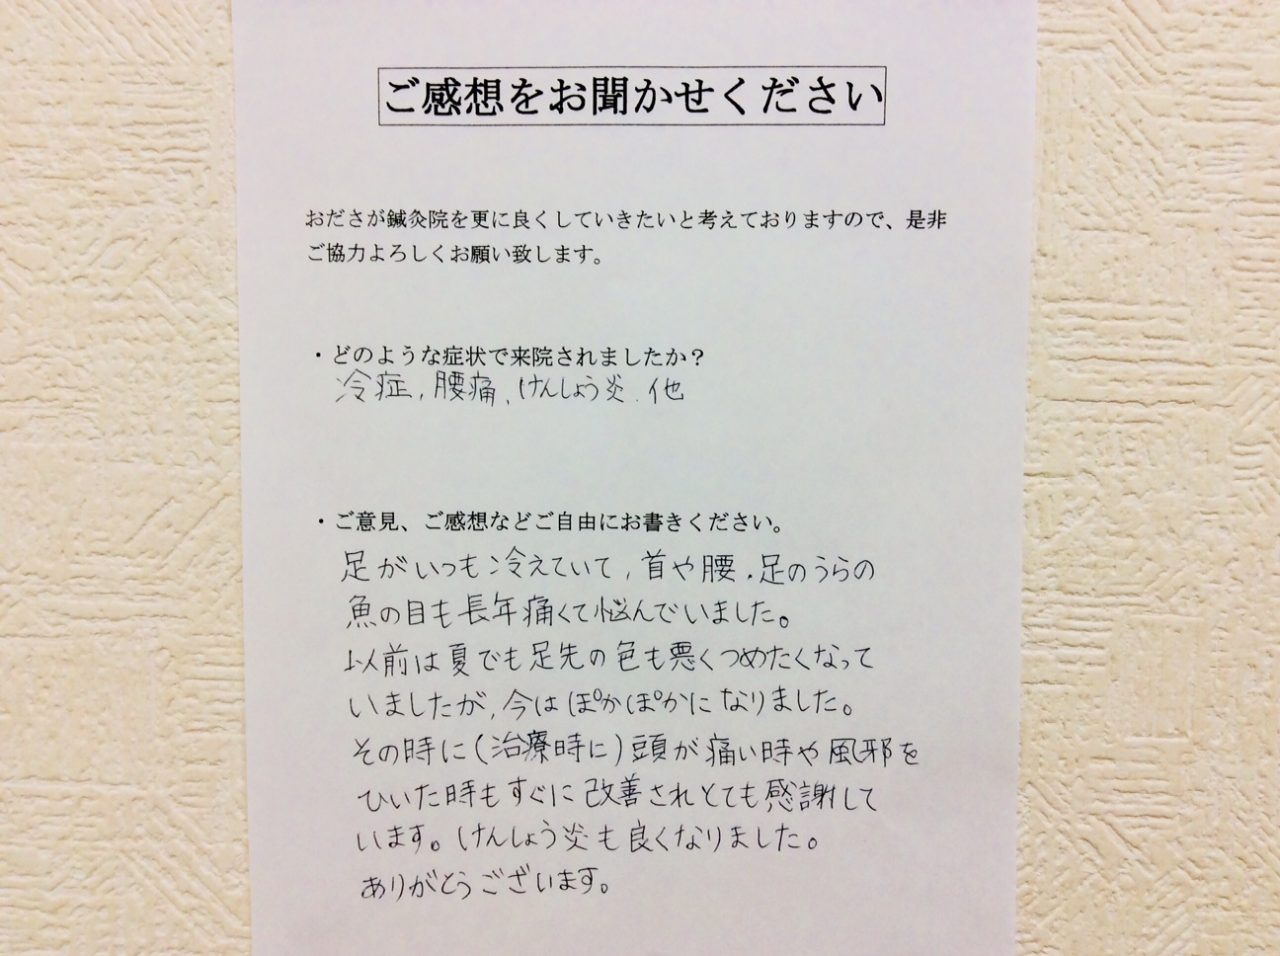 ご感想をお聞かせください
おださが鍼灸院を更に良くしていきたいと考えておりますので、是非
ご協力よろしくお願い致します。
・どのような症状で来院されましたか？
冷症，腰痛，けんしょう炎．他
・ご意見、ご感想などご自由にお書きください。
足がいつも冷えていて，首や腰．足のうらの
魚の目も長年痛くて悩んでいました。
以前は夏でも足先の色も悪くつめたくなって
いましたが，今はぽかぽかになりました。
その時に(治療時に)頭が痛い時や風邪を
ひいた時もすぐに改善されとても感謝して
います。けんしょう炎も良くなりました。
ありがとうございます。